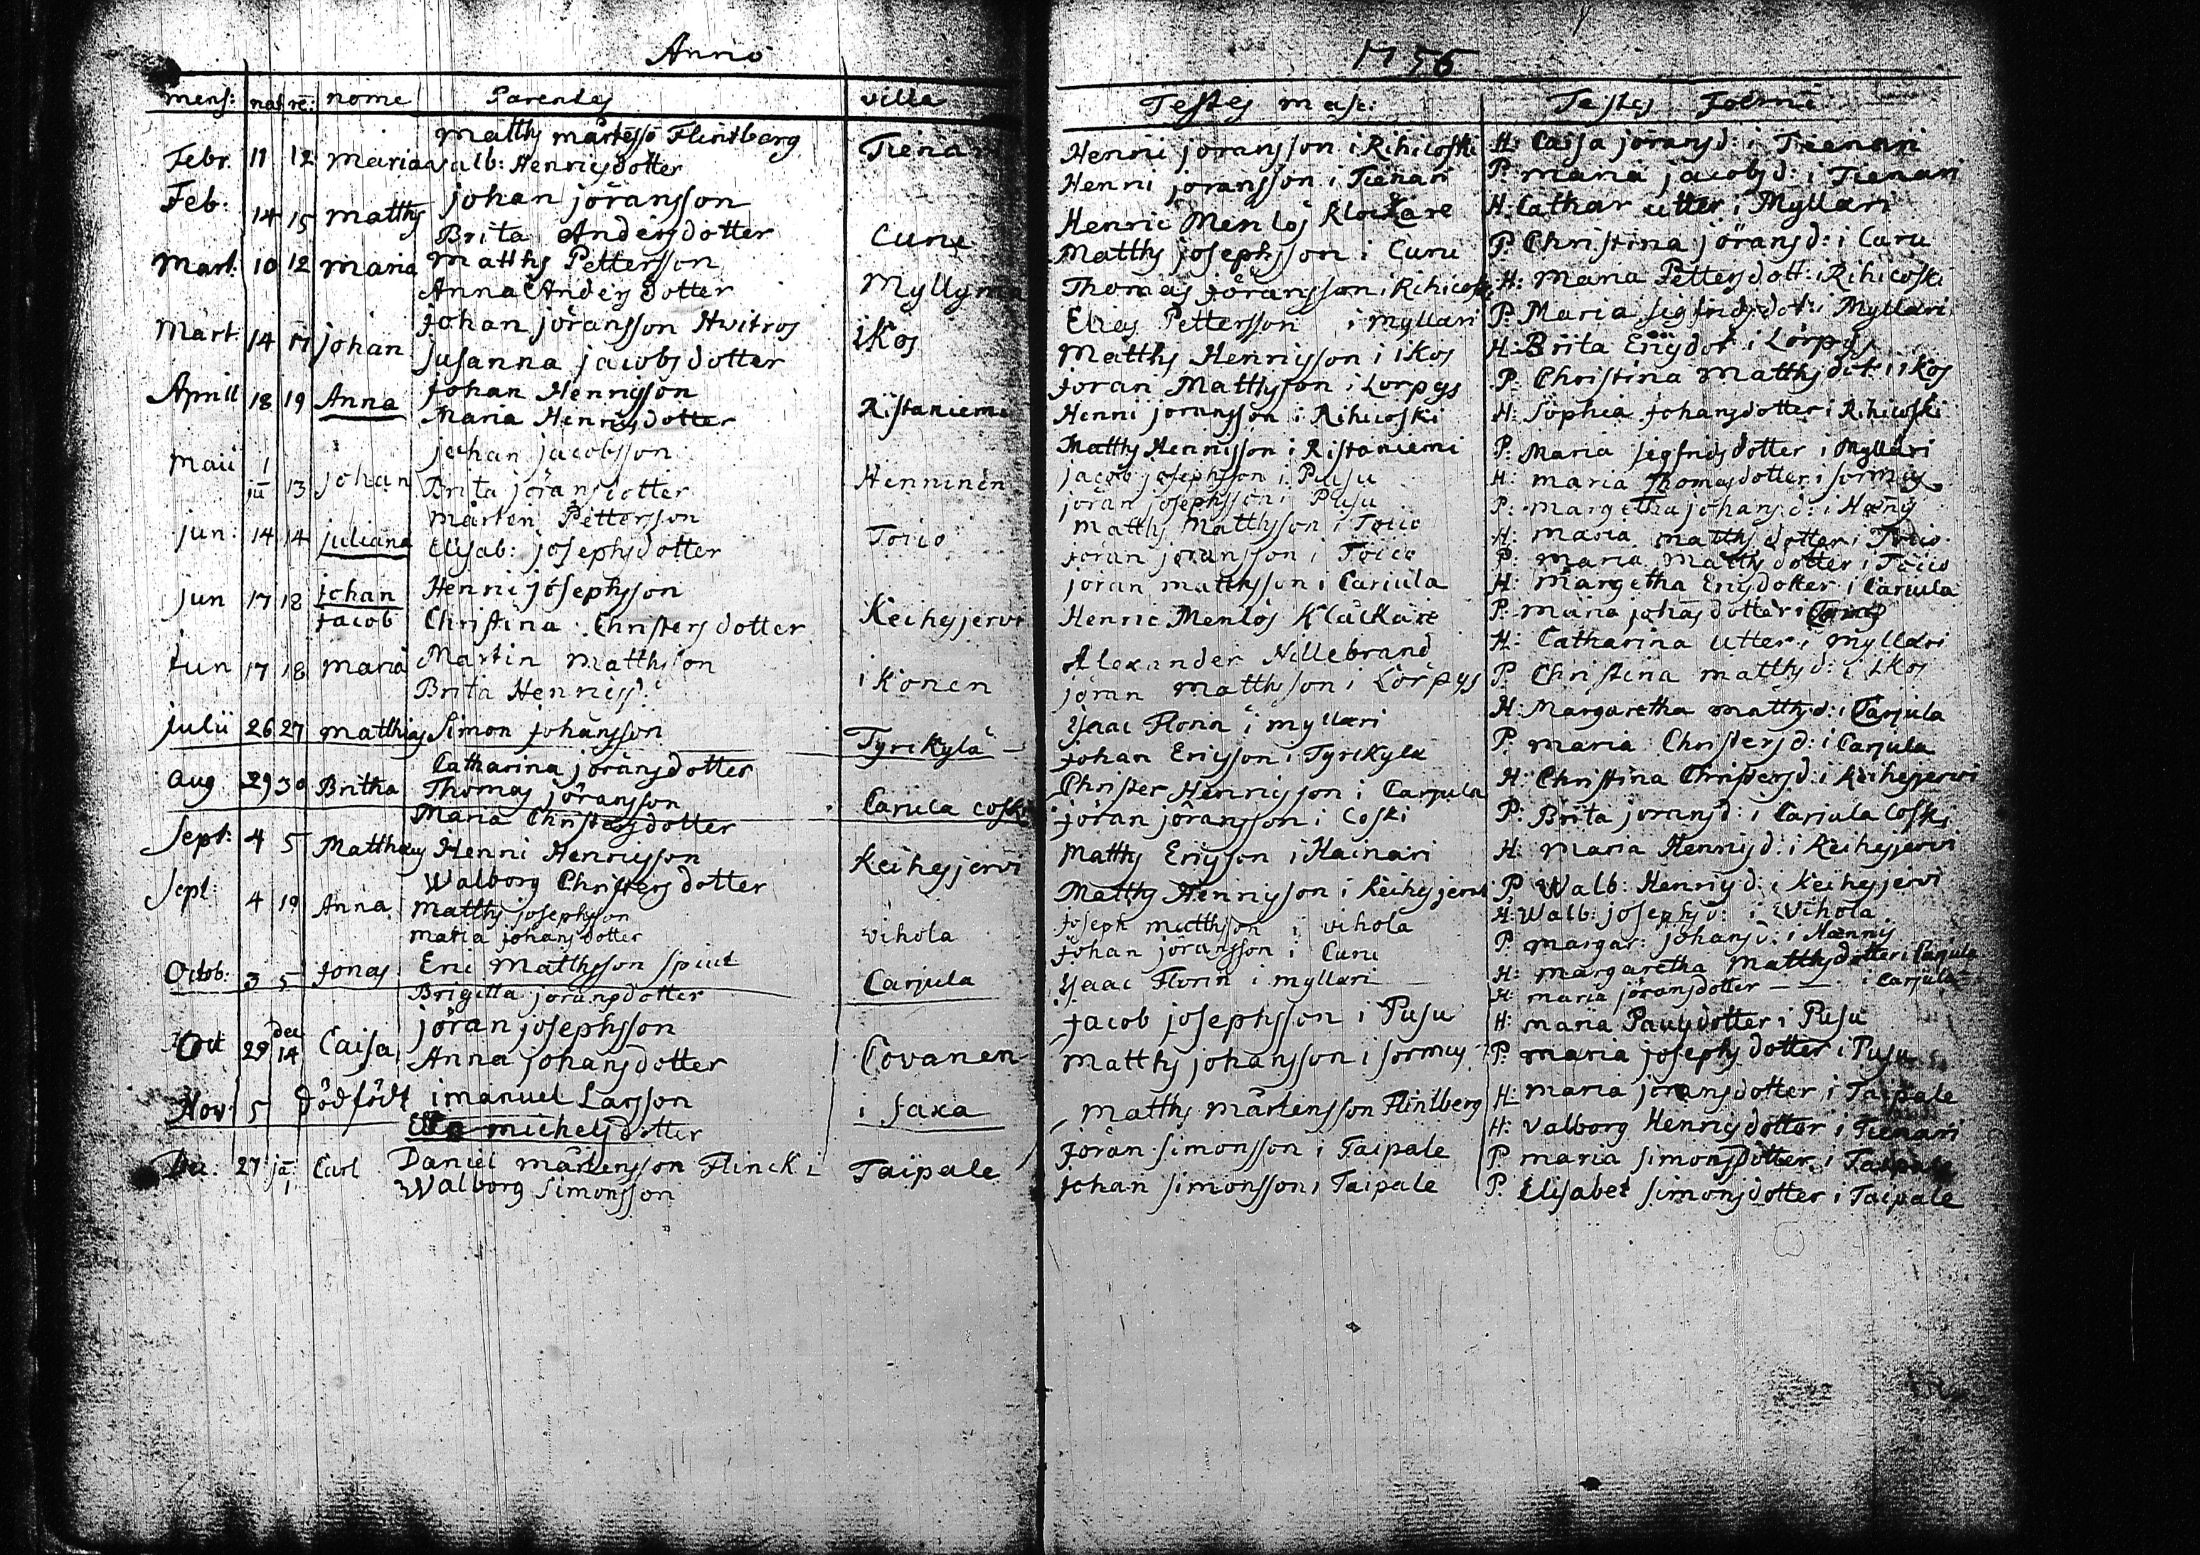 Anno 1756
mens: nat re: nome Parentes ville Testes mas: Testes Foemi
Matths mårtesso Flintberg
Febr. 11 12 maria valb: Henricsdotter Tienari
Feb: 14 15 matths johan jöransson
Brita Andersdotter Curu
Mart: 10 12 maria matths Pettersson
Anna Andersdotter Myllyma
Mart. 14 17 johan johan jöransson Hwitros
susanna jacobsdotter ikos
Aprill 18 19 Anna johan Henricsson
Maria Henricsdotter Ristaniemi
Maii 1 johan jacobsson
ju 13 johan Brita jöransdotter Henninen
jun: 14 14 juliana mårten Pettersson
Elisab: josephsdotter Toiio
jun 17 18 johan Henric josephsson
jacob Christina Christersdotter Keihesjervi
jun 17 18 maria Martin matthsson
Brita Henricsd: ikonen
julii 26 27 matthias Simon johansson
Catharina jöransdotter Tyrikylä
Aug 29 30 Britha Thomas jöransson
Maria Christersdotter Cariula coski
Sept: 4 5 Mattheus Henric Henricsson
Walborg Christersdotter Keihesjervi
Sept: 4 19 Anna matths josephsson
maria johansdotter vihola
Octob: 3 5 jonas Eric Matthsson spiut
Brigitta jöransdotter Carjula
Oct 29 dec 14 Caisa jöran josephsson
Anna johansdotter Covanen
Nov: 5 dödfödt imanuel Larsson
michelsdotter i faxa
De: 27 ja: 1 Carl Daniel mårtensson Flinck i Taipale
Walborg simonsson
Henric joransson i Rihicoski H: Caisa joransd: i Tienari
Henric joransson i Tienari P: maria jacobsd: i Tienari
Henric Menlös Klockare H: Cathar utter i Myllari
Matths josephsson i Curu P: Christina jöransd: i Curu
Thomas jöransson i Rihicoski H: Maria Pettersdott: i Rihicoski
Elias Pettersson i myllari P: Maria sigfridsdot: i Myllari
Matths Henricsson i ikos H: Brita Ericsdot i Lörpys
Joran Matthsson i Lorpys P: Christina Matthsdot i ikos
Henric joransson i Rihicoski H: Sophia johansdotter i Rihicoski
Matths Henricsson i Ristaniemi P: Maria sigfridsdotter i Myllari
jacob josephsson i Pusu H: maria Thomasdotter i sormus
jöran josephsson i Pusu P: margetha johansd: i Hænnis
matths Matthsson i Toiio H: maria matthsdotter i Toiio
joran joransson i Toiio P: maria Matthsdotter i Toiio
joran matthsson i Cariula H: Margetha Ericsdotter i Cariula
Henric Menlös Klåckare P: maria johasdotter i
Alexander Hillebrand H: Catharina utter i myllari
jöran matthsson i Lörpys P: Christina matthsd: i ikos
Isaac Florin i myllari H: Margaretha matthsd: i Carjula
johan Ericsson i Tyrikyla P: maria Christersd: i Carjula
Christer Henricsson i Carjula H: Christina Christersd: i Keihesjervi
jöran jöransson i Coski P: Brita joransd: i Carjula Coski
Matths Ericsson i Hainari H: Maria Henricsd: i Keihesjervi
Matths Henricsson i Keihesjervi P: Walb: Henricsd: i Keihesjervi
joseph matthsson i vihola H: Walb: josephsd: i vihola
johan jöransson i Curu P: margar: johansd: i Hænnis
Isaac Florin i myllari H: margaretha Matthsdotter i Carjula
H: maria jöransdotter i Carjula
jacob josephsson i Pusu H: maria Paulsdotter i Pusu
matths johansson i sormus P: maria josephsdotter i Pusu
matths mårtensson Flintberg H: maria joransdotter i Taipale
H: valborg Henricsdotter i Tienari
jöran simonsson i Taipale P: maria simonsdotter i Taipale
johan simonsson i Taipale P: Elisabet simonsdotter i Taipale